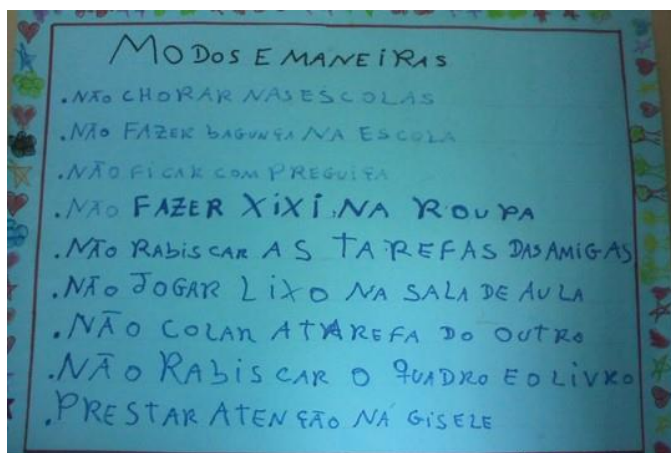 MODOS E MANEIRAS
.NÃO CHORAR NAS ESCOLAS
.NÃO FAZER bAGUNÇA NA ESCOLA
.NÃO FICAR COM PREGUIÇA
.NÃO FAZER XIXI NA ROUPA
.NÃO RABISCAR AS TAREFAS DAS AMIGAS
.NÃO JOGAR LIXO NA SALA DE AULA
.NÃO COLAR A TAREFA DO OUTRO
.NÃO RABISCAR O QUADRO E O LIVRO
.PRESTAR ATENÇÃO NA GISELE